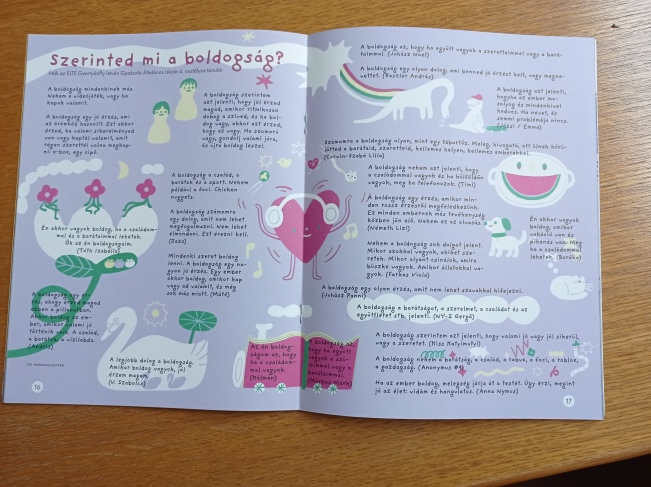 Szerinted mi a boldogság?
Írták az ELTE Gyertyánffy István Gyakorló Általános Iskola 4. osztályos tanulói
A boldogság mindenkinek más.
Nekem a videójáték, vagy ha
kapok valamit.
A boldogság egy jó érzés, ami
az örömhöz hasonlít. Ezt akkor
érzed, ha valami sikerélményed
van vagy kaptál valamit, amit
régen szerettél volna megkap-
ni: x-box, egy cipő.
A boldogság szerintem
azt jelenti, hogy jól érzed
magad, amikor ritmikusan
dobog a szíved, és ha bol-
dog vagy, akkor azt érzed,
hogy az vagy. Ha szomorú
vagy, gondolj valami jóra,
és újra boldog leszel.
Én akkor vagyok boldog, ha a családom-
mal és a barátaimmal lehetek.
Ők az én boldogságaim.
(Tóth Izabella)
A boldogság a család, a
barátok és a sport. Nekem
például a foci. Chicken
nuggets.
A boldogság számomra
egy dolog, amit nem lehet
megfogalmazni. Nem lehet
elmondani. Ezt érezni kell.
(Zoza)
Mindenki szeret boldog
lenni. A boldogság egy na-
gyon jó érzés. Egy ember
akkor boldog, amikor kap
vagy ad valamit, és még
sok más miatt. (Máté)
A boldogság egy
és, ahogy érzed magad
ebben a pillanatban.
Akkor boldog az em-
ber, amikor valami jó
történik vele. A család,
a barátok, a vízilabda.
(András)
A legjobb dolog a boldogság.
Amikor boldog vagyok, jól
érzem magam.
(V. Szabolcs)
Az én boldog-
ságom az, hogy
ha a családom-
mal vagyok.
(Kálmán)
A boldogság az,
hogy ha együtt
vagyok a szü-
leimmel vagy a
barátaimmal.
(Márkus Márk)
16
A boldogság az, hogy ha együtt vagyok a szeretteimmel vagy a bará-
taimmal. (Juhász Noel)
A boldogság egy olyan dolog, ami benned jó érzést kelt, vagy megne-
vettet. (Raszler András)
A boldogság azt jelenti,
hogyha az ember mo-
solyog és mindenkivel
kedves. Ha nevet, és
semmi problémája nincs.
/ Emma)
Számomra a boldogság olyan, mint egy tábortűz. Meleg, hívogató, ott ülnek körü-
lötted a barátaid, szeretteid, kellemes helyen, kellemes emberekkel.
Szabó Lilla)
A boldogság nekem azt jelenti, hogy
a családommal vagyok és ha házúszón
vagyok, meg ha telefonozok. (Timi)
A boldogság egy érzés, amikor min-
den rossz érzésről megfeledkezünk.
Ez minden embernek más tevékenység
közben jön elő. Nekem ez az olvasás.
(Németh Lizi)
Nekem a boldogság sok dolgot jelent.
Mikor azokkal vagyok, akiket sze-
retek. Mikor olyat csinálok, amire
büszke vagyok. Amikor állatokkal va-
gyok. (Farkas Vivia)
Én akkor
vagyok boldog,
amikor
vakáció van és
pihenés van. Meg
ha a családommal
lehetek. (Baráka)
A boldogság egy olyan érzés, amit nem lehet szavakkal kifejezni.
(Juhász Panni)
A boldogság a barátságot, a szerelmet, a családot és az
együttlétet stb. jelenti. (NY-Z Gergő)
A boldogság szerintem azt jelenti, hogy valami jó vagy jól sikerül,
vagy a szeretet. (Kiss Natyimatyi)
A boldogság nekem a barátság, a család, a tapur, a foci, a roblox,
a gazdagság. (Anonymus #1)
Ha az ember boldog, melegség járja át a testét. Úgy érzi, megint
jó az élet: vidám és hangulatos. (Anna Nymus)
17